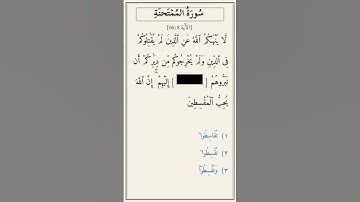 سُورَةُ المُمْتَحنَةِ
[الآية 8:60]
لَّا يَنْهَىٰكُمُ ٱللَّهُ عَنِ ٱلَّذِينَ لَمْ يُقَٰتِلُوكُمْ
فِى ٱلدِّينِ وَلَمْ يُخْرِجُوكُم مِّن دِيَٰرِكُمْ أَن
تَبَرُّوهُمْ [ ] إِلَيْهِمْ ۚ إِنَّ ٱللَّهَ
يُحِبُّ ٱلْمُقْسِطِينَ
١) تُقَاسِطُوا۟
٢) تُقْسِطُوا۟
٣) وَتُقْسِطُوٓا۟